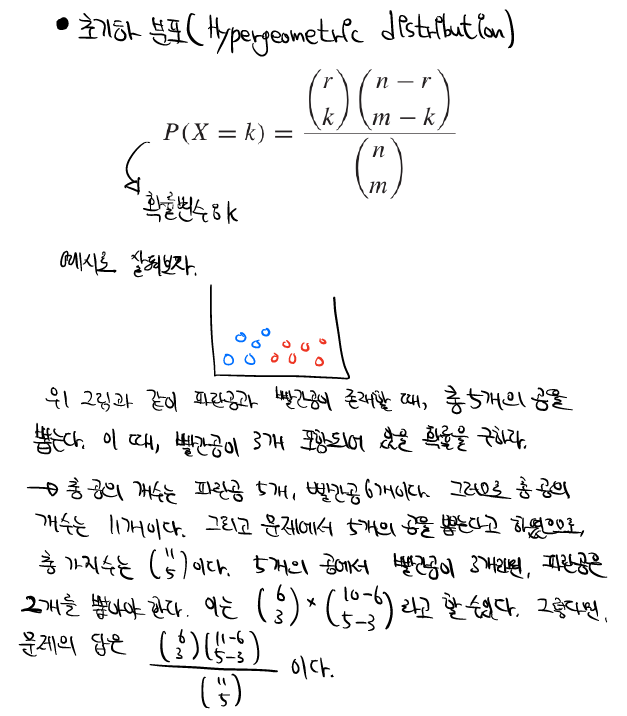 • 초기하 분포(Hypergeometric distribution)
P(X = k) = \frac{\binom{r}{k}\binom{n-r}{m-k}}{\binom{n}{m}}
확률변수 k
예시로 살펴보자.
위 그림과 같이 파란공과 빨간공이 존재할 때, 총 5개의 공을
뽑는다. 이 때, 빨간공이 3개 포함되어 있을 확률을 구하라.
→ 총 공의 개수는 파란공 5개, 빨간공 6개이다. 그러므로 총 공의
개수는 11개이다. 그리고 문제에서 5개의 공을 뽑는다고 하였으므로,
총 가지수는 \binom{11}{5}이다. 5개의 공에서 빨간공이 3개라면, 파란공은
2개를 뽑아야 한다. 이는 \binom{6}{3} × \binom{10-6}{5-3}라고 할 수 있다. 그렇다면,
문제의 답은 \frac{\binom{6}{3}\binom{11-6}{5-3}}{\binom{11}{5}} 이다.